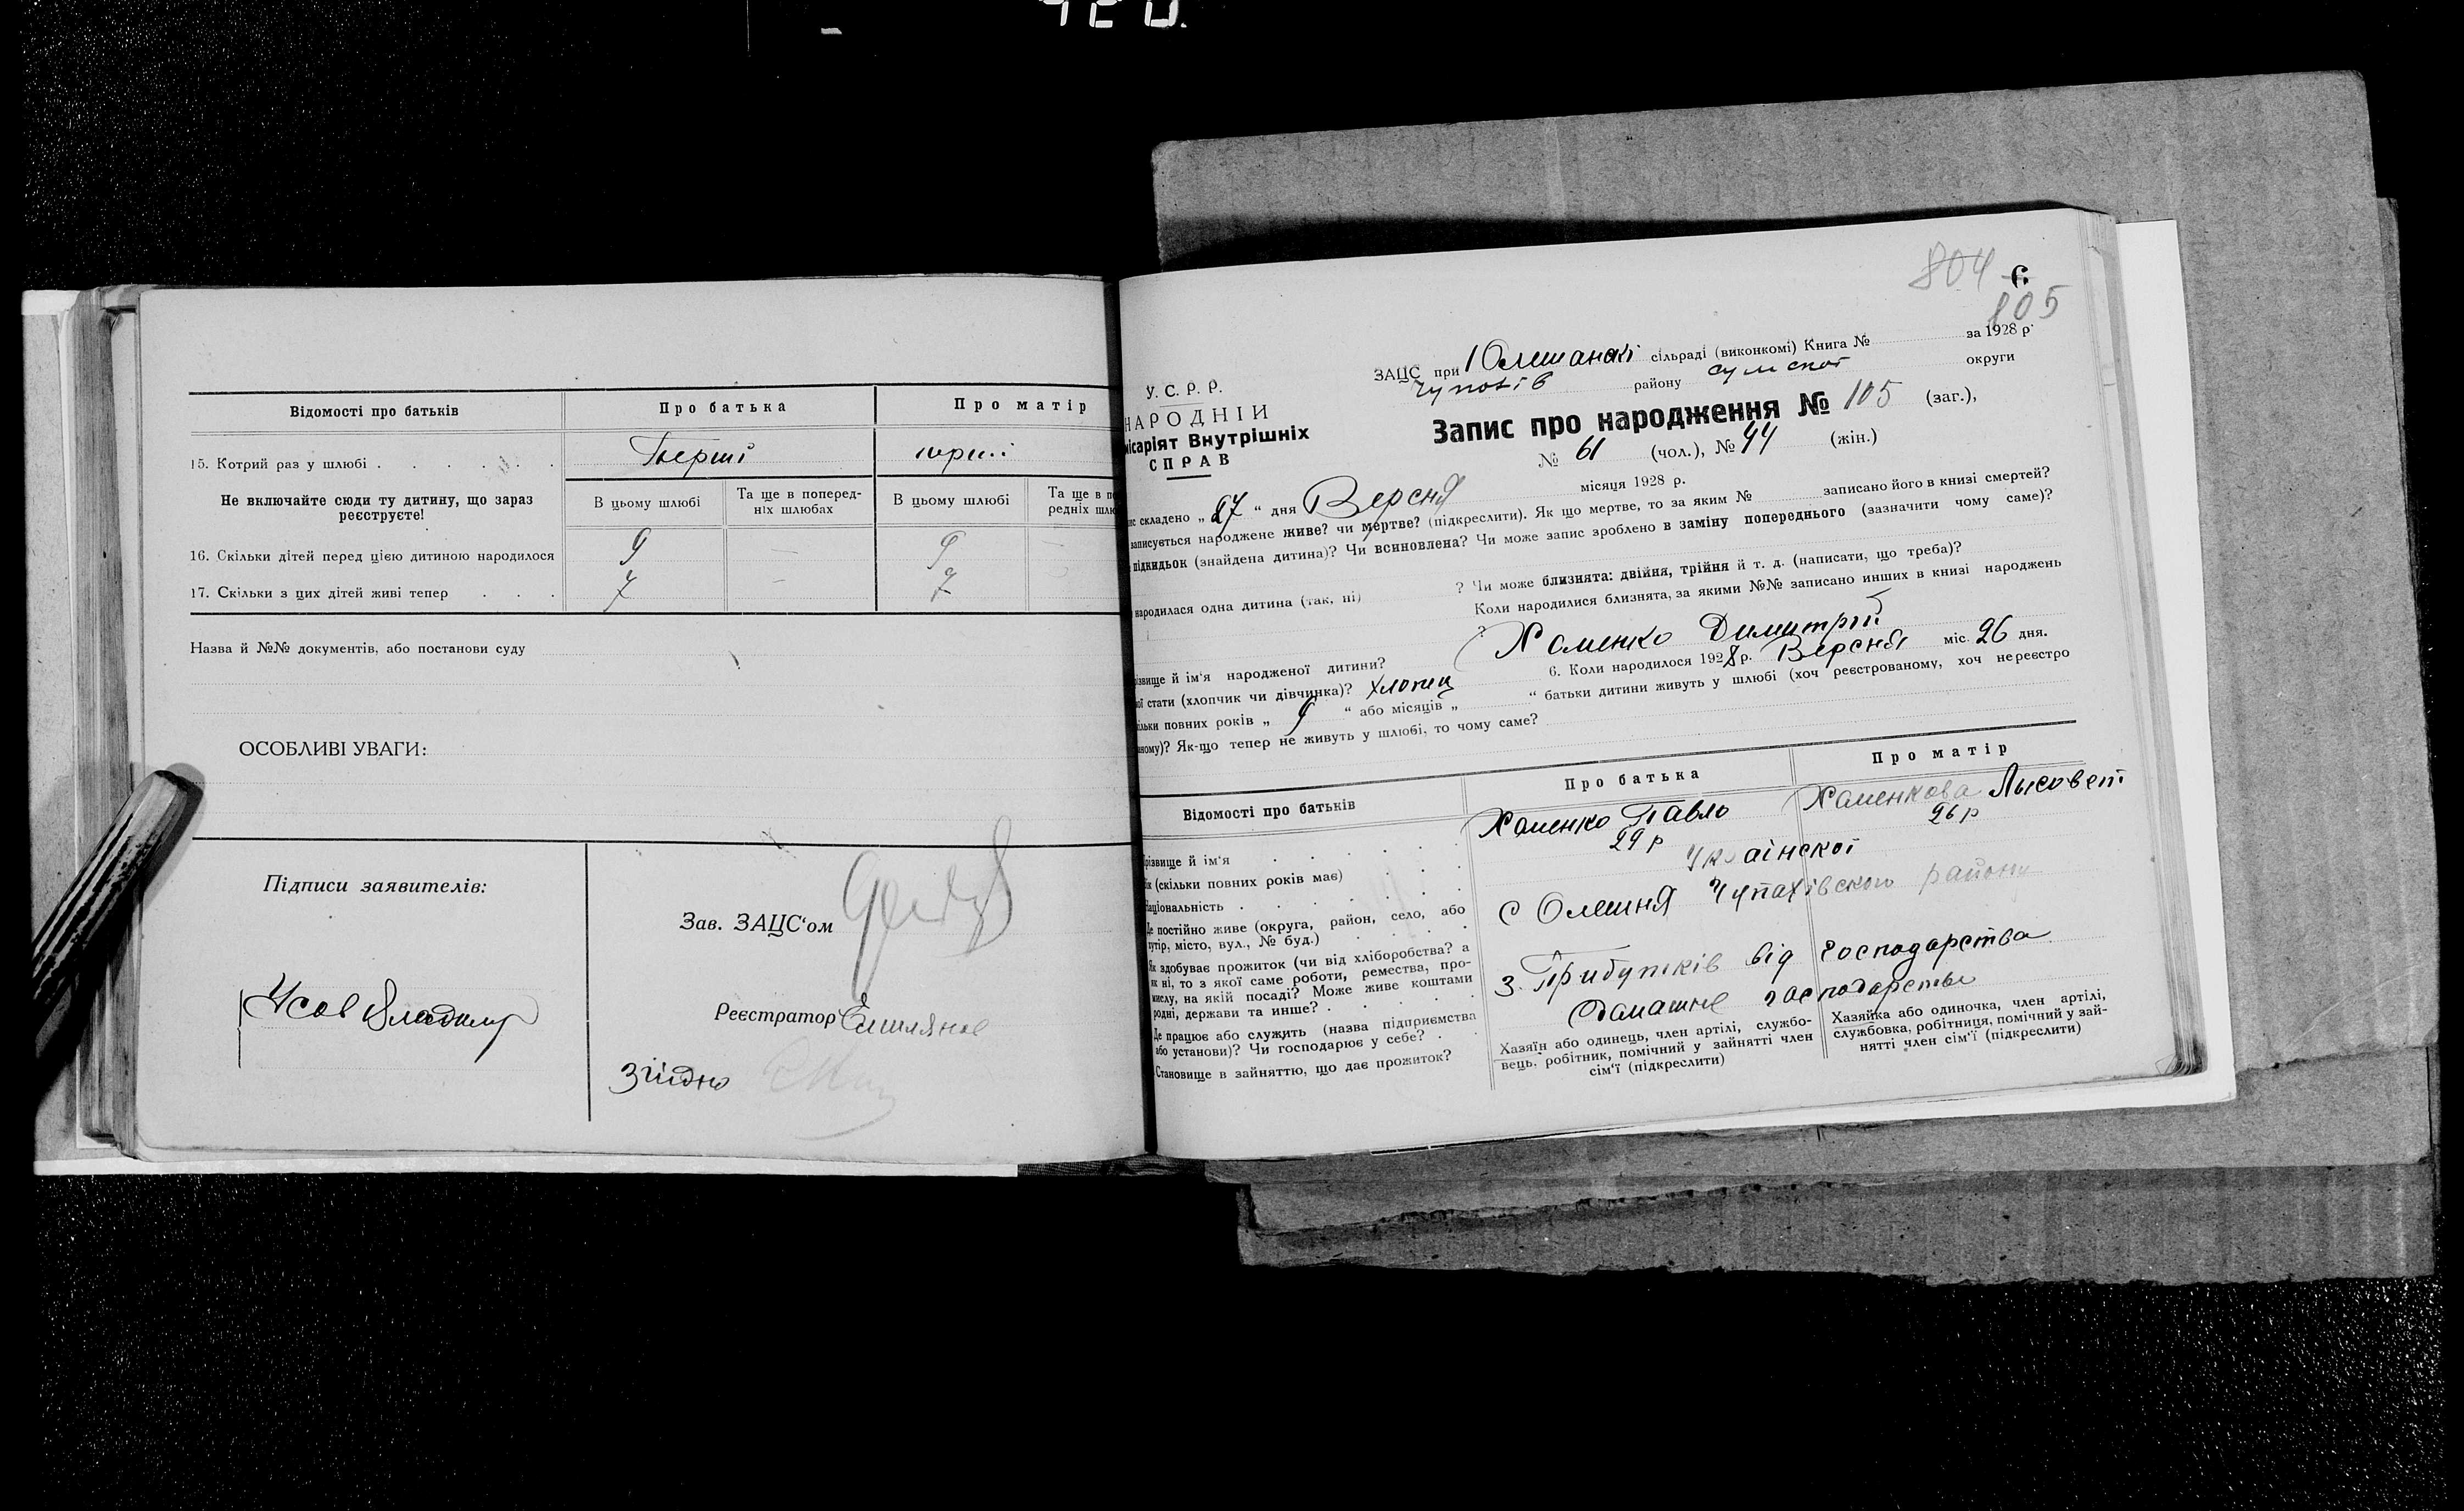 Відомості про батьків
Про батька
Про матір
15. Котрий раз у шлюбі . . . . . .
Перші
перші
Не включайте сюди ту дитину, що зараз
реєструєте!
В цьому шлюбі
Та ще в поперед-
ніх шлюбах
В цьому шлюбі
Та ще в по
редніх шлю
16. Скільки дітей перед цією дитиною народилося
9
—
9
—
17. Скільки з цих дітей живі тепер . . .
7
—
7
Назва й №№ документів, або постанови суду
ОСОБЛИВІ УВАГИ:
Підписи заявителів:
Усов Владимир
Зав. ЗАЦС‘ом
Реєстратор
Згідно
804
6
805
У. С. Р. Р.
НАРОДНІЙ
місаріят Внутрішніх
СПРАВ
ЗАЦС при Олешанскі сільраді (виконкомі) Книга № за 1928 р.
району Сумскої округи
Запис про народження № 105 (заг.),
№ 61 (чол.), № 44 (жін.)
ис складено „ 27 “ дня Версня місяця 1928 р.
записується народжене живе? чи мертве? (підкреслити). Як що мертве, то за яким № записано його в книзі смертей?
підкидьок (знайдена дитина)? Чи всиновлена? Чи може запис зроблено в заміну попереднього (зазначити чому саме)?
народилася одна дитина (так, ні) ? Чи може близнята: двійня, трійня й т. д. (написати, що треба)?
Коли народилися близнята, за якими №№ записано инших в книзі народжень
?
різвище й ім‘я народженої дитини? Хоменко Димитрій
ої стати (хлопчик чи дівчинка)? Хлопец 6. Коли народилося 1928 р. Версня міс. 26 дня.
ільки повних років „ 9 “ або місяців „ “ батьки дитини живуть у шлюбі (хоч реєстрованому, хоч нереєстро
ному)? Як-що тепер не живуть у шлюбі, то чому саме?
Відомості про батьків
Про батька
Про матір
різвище й ім‘я . . . . . .
Хоменко Павло
Хоменкова Лысовет
ік (скільки повних років має) . . .
29 р
26 р
Національність . . . . . . .
Украінскої
Де постійно живе (округа, район, село, або
хутір, місто, вул., № буд.) . . . .
С Олешня Чупахівского району
Як здобуває прожиток (чи від хліборобства? а
як ні, то з якої саме роботи, ремества, про-
мислу, на якій посаді? Може живе коштами
родні, держави та инше? . . . . .
З Прибутків від господарства
Де працює або служить (назва підприємства
або установи)? Чи господарює у себе? . .
Домашне господарство
Становище в зайняттю, що дає прожиток?
Хазяїн або одинець, член артілі, службо-
вець, робітник, помічний у зайнятті член
сім‘ї (підкреслити)
Хазяйка або одиночка, член артілі,
службовка, робітниця, помічний у зай-
нятті член сім‘ї (підкреслити)